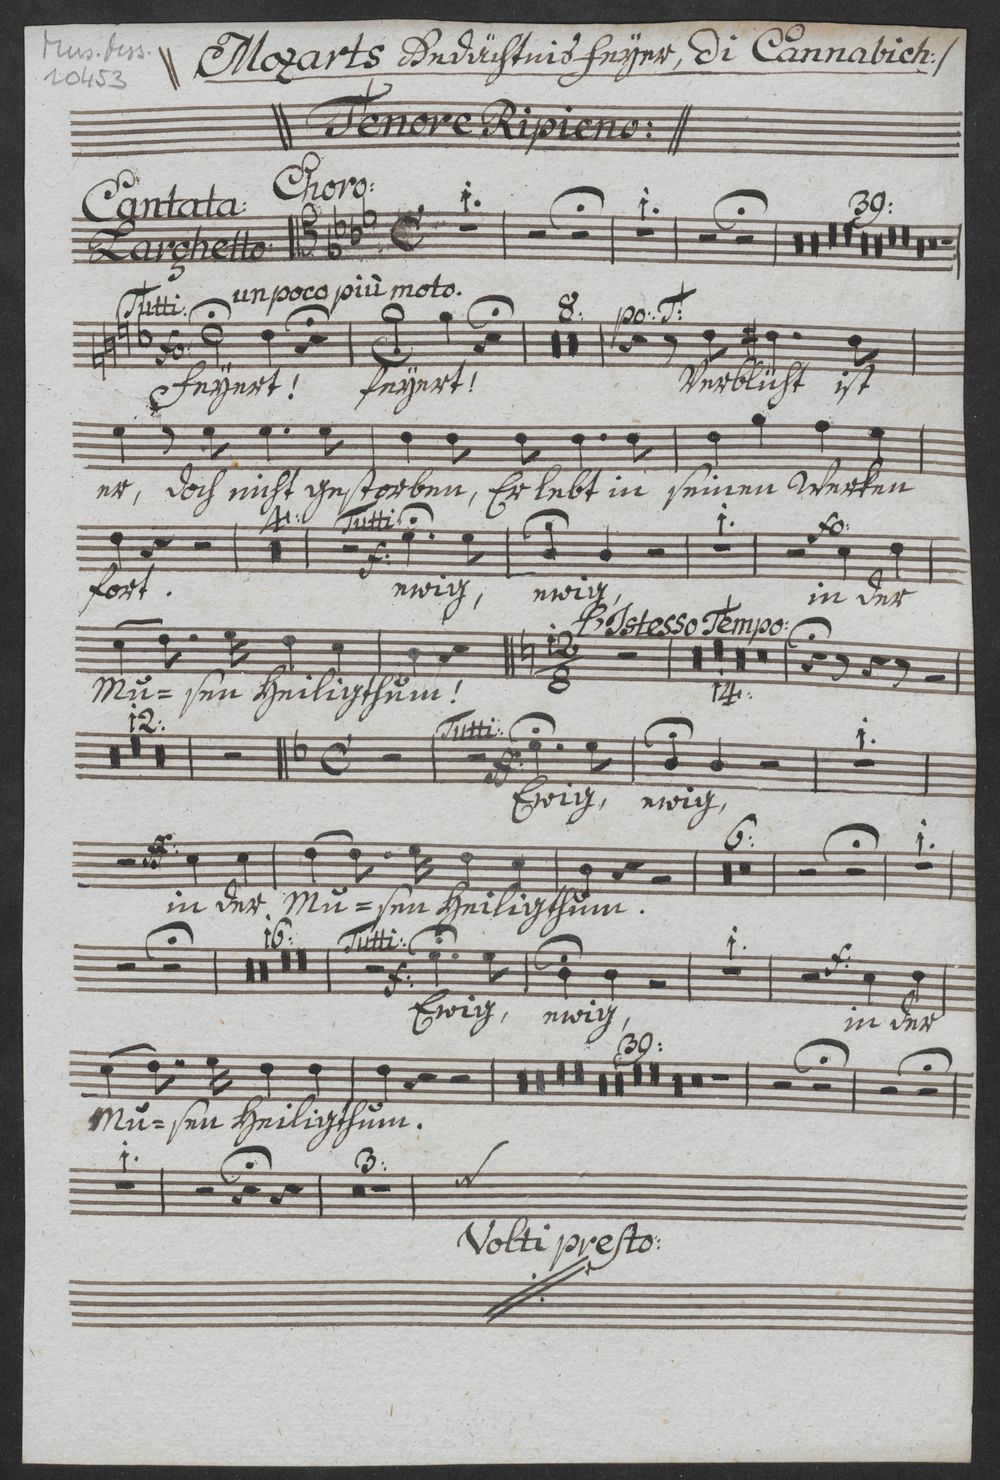 Mus. Hss.
10453
Mozarts Gedächtnis feyer, Di Cannabich:/
Tenore Ripieno:
Cantata: Choro: 1. 1. 39:
Larghetto:
Tutti. un poco più moto. 8: po: T:
fo:
Feyert! feyert! Verblüht ist
er, doch nicht gestorben, Er lebt in seinen Werken
4: Tutti f: 1. fo:
fort. ewig, ewig, in der
L'Istesso Tempo:
12
8
14:
Mu=sen Heiligthum!
12: Tutti: ff: 1.
Ewig, ewig,
ff: 6: 1.
in der Mu=sen Heiligthum.
16: Tutti: f: 1. f:
Ewig, ewig, in der
39:
Mu=sen Heiligthum.
1. 3:
Volti presto: